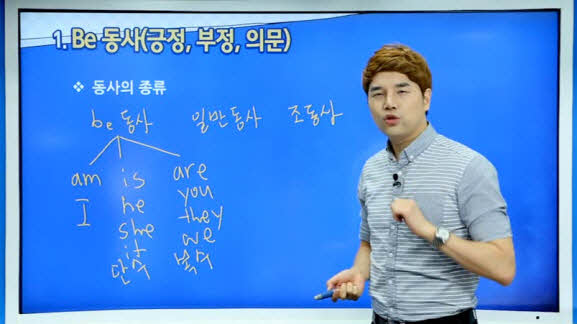 1. Be 동사(긍정, 부정, 의문)
❖ 동사의 종류
be 동사 일반동사 조동사
am is are
I he you
she they
it we
단수 복수